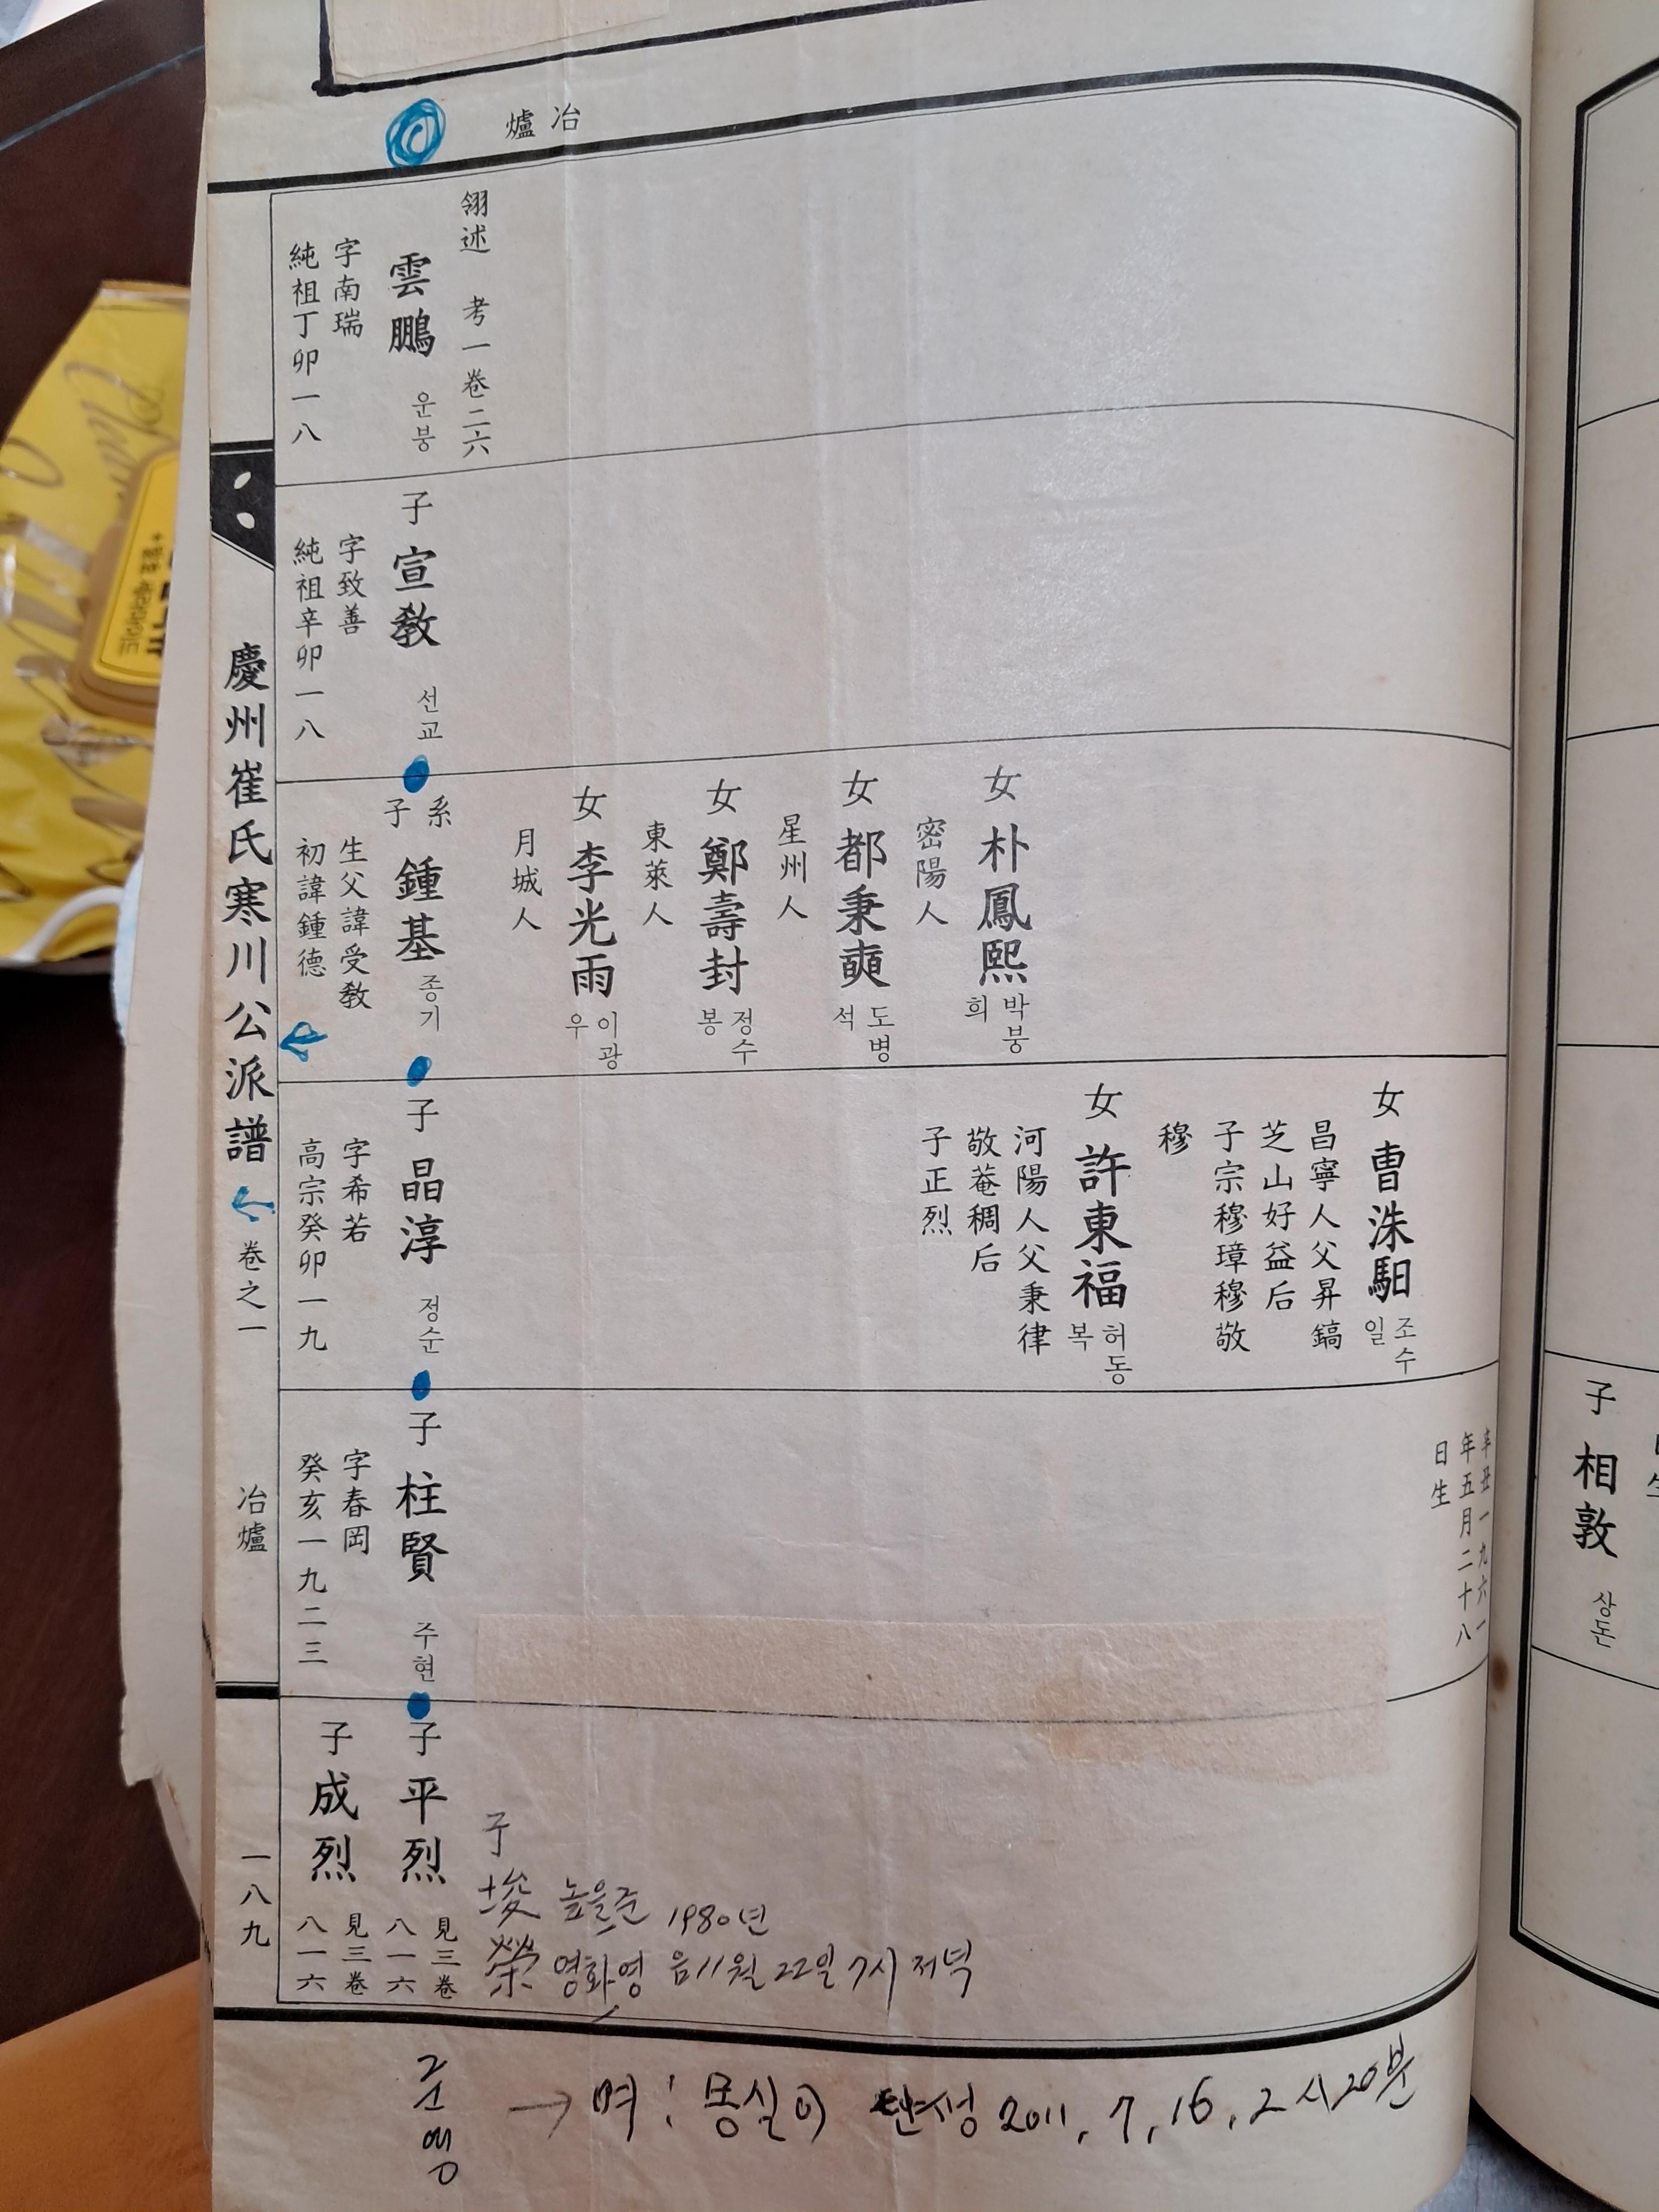 冶爐
翎述 考一卷二六
雲鵬 운붕
字南瑞
純祖丁卯一八
女 朴鳳熙 박봉희
密陽人
女 都秉奭 도병석
星州人
女 鄭壽封 정수봉
東萊人
女 李光雨 이광우
月城人
子 宣敎 선교
字致善
純祖辛卯一八
系子 鍾基 종기
生父諱受敎
初諱鍾德
辛丑一九六一
年五月二十八
日生
女 曺洙馹 조수일
昌寧人父昇鎬
芝山好益后
子宗穆璋穆敬
穆
女 許東福 허동복
河陽人父秉律
敬菴稠后
子正烈
子 晶淳 정순
字希若
高宗癸卯一九
子 柱賢 주현
字春岡
癸亥一九二三
子 平烈 見三卷八一六
子 成烈 見三卷八一六
子
埈 높을준 1980년
榮 영화영 음11월 22일 7시 저녁
준영
→ 멱: 몽실이 탄생 2011, 7, 16, 2시20분
慶州崔氏寒川公派譜 卷之一 冶爐 一八九
子 相敦 상돈